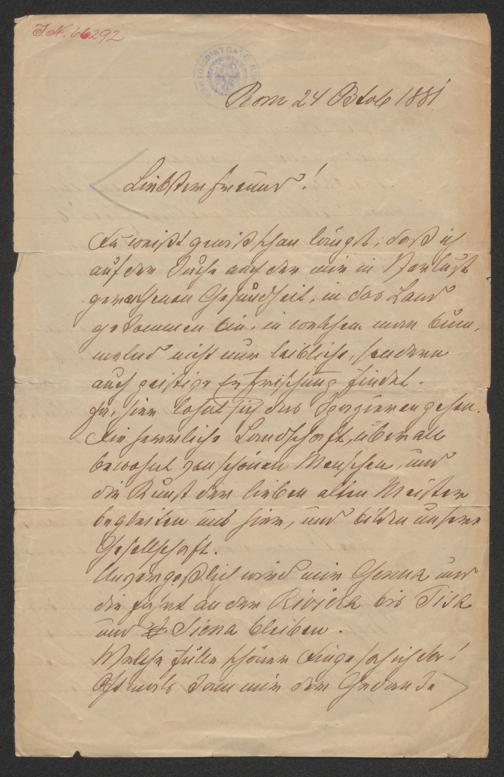 J.N. 66292
Rom 24 Oktob 1881
Liebster Freund!
Du weißt gewiß schon längst, daß ich
auf der Suche nach der mir in Verlust
gerathenen Gesundheit, in das Land
gekommen bin, in welchem man bum-
melnd nicht nur leibliche, sondern
auch geistige Erfrischung findet.
Ja, hier lohnt sich das Spazierengehen.
Die herrliche Landschaft, überall
bewohnt von schönen Menschen, und
die Kunst der lieben alten Meister
begleiten uns hier, und bilden unsere
Gesellschaft.
Unvergeßlich wird mir Genua und
die Fahrt an der Riviera bis Pisa
und Siena bleiben.
Welche Fülle schöner Dinge sah ich da!
Oftmals kam mir der Gedanke